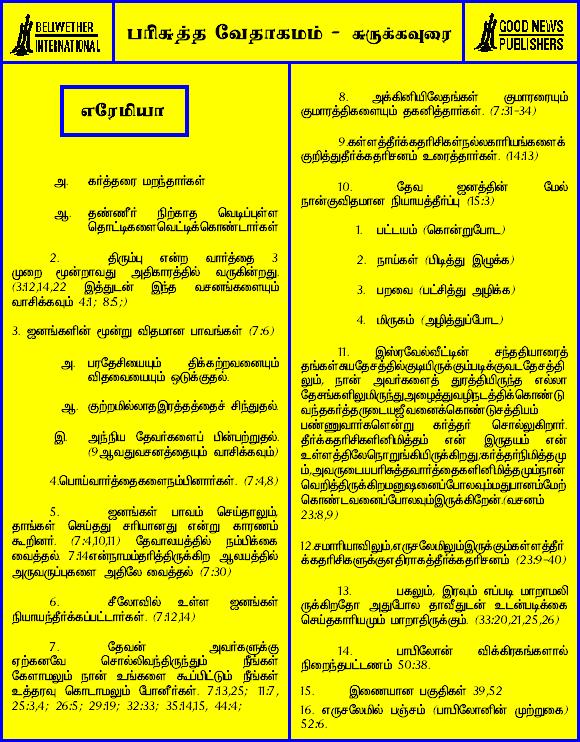 BELLWETHER
INTERNATIONAL
பரிசுத்த வேதாகமம் - சுருக்கவுரை
GOOD NEWS
PUBLISHERS
எரேமியா
அ. கர்த்தரை மறந்தார்கள்
ஆ. தண்ணீர் நிற்காத வெடிப்புள்ள
தொட்டிகளைவெட்டிக்கொண்டார்கள்
2. திரும்பு என்ற வார்த்தை 3
முறை மூன்றாவது அதிகாரத்தில் வருகின்றது.
(3:12,14,22 இத்துடன் இந்த வசனங்களையும்
வாசிக்கவும் 4:1; 8:5;)
3. ஜனங்களின் மூன்று விதமான பாவங்கள் (7:6)
அ. பரதேசியையும் திக்கற்றவனையும்
விதவையையும் ஒடுக்குதல்.
ஆ. குற்றமில்லாதஇரத்தத்தைச் சிந்துதல்.
இ. அந்நிய தேவர்களைப் பின்பற்றுதல்.
(9ஆவதுவசனத்தையும் வாசிக்கவும்)
4.பொய்வார்த்தைகளைநம்பினார்கள். (7:4,8)
5. ஜனங்கள் பாவம் செய்தாலும்,
தாங்கள் செய்தது சரியானது என்று காரணம்
கூறினர். (7:4,10,11) தேவாலயத்தில் நம்பிக்கை
வைத்தல் 7:14என்நாமம்தரித்திருக்கிற ஆலயத்தில்
அருவருப்புகளை அதிலே வைத்தல் (7:30)
6. சீலோவில் உள்ள ஜனங்கள்
நியாயந்தீர்க்கப்பட்டார்கள். (7:12,14)
7. தேவன் அவர்களுக்கு
ஏற்கனவே சொல்லிவந்திருந்தும் நீங்கள்
கேளாமலும் நான் உங்களை கூப்பிட்டும் நீங்கள்
உத்தரவு கொடாமலும் போனீர்கள். 7:13,25; 11:7,
25:3,4; 26:5; 29:19; 32:33; 35:14,15, 44:4;
8. அக்கினியிலேதங்கள் குமாரரையும்
குமாரத்திகளையும் தகனித்தார்கள். (7:31-34)
9.கள்ளத்தீர்க்கதரிசிகள்நல்லகாரியங்களைக்
குறித்துதீர்க்கதரிசனம் உரைத்தார்கள். (14:13)
10. தேவ ஜனத்தின் மேல்
நான்குவிதமான நியாயத்தீர்ப்பு (15:3)
1. பட்டயம் (கொன்றுபோட)
2. நாய்கள் (பிடித்து இழுக்க)
3. பறவை (பட்சித்து அழிக்க)
4. மிருகம் (அழித்துப்போட)
11. இஸ்ரவேல்வீட்டின் சந்ததியாரைத்
தங்கள்சுயதேசத்தில்குடியிருக்கும்படிக்குவடதேசத்தி
லும், நான் அவர்களைத் துரத்தியிருந்த எல்லா
தேசங்களிலுமிருந்துஅழைத்துவழிநடத்திக்கொண்டு
வந்தகர்த்தருடையஜீவனைக்கொண்டுசத்தியம்
பண்ணுவார்களென்று கர்த்தர் சொல்லுகிறார்.
தீர்க்கதரிசிகளினிமித்தம் என் இருதயம் என்
உள்ளத்திலேநொறுங்கியிருக்கிறது;கர்த்தர்நிமித்தமு
ம்,அவருடையபரிசுத்தவார்த்தைகளினிமித்தமும்நான்
வெறித்திருக்கிறமனுஷனைப்போலவும்மதுபானம்மேற்
கொண்டவனைப்போலவும்இருக்கிறேன்.(வசனம்
23:8,9)
12.சமாரியாவிலும்,எருசலேமிலும்இருக்கும்கள்ளத்தீர்
க்கதரிசிகளுக்குஎதிராகத்தீர்க்கதரிசனம் (23:9-40)
13. பகலும், இரவும் எப்படி மாறாமலி
ருக்கிறதோ அதுபோல தாவீதுடன் உடன்படிக்கை
செய்தகாரியமும் மாறாதிருக்கும். (33:20,21,25,26)
14. பாபிலோன் விக்கிரகங்களால்
நிறைந்தபட்டணம் 50:38.
15. இணையான பகுதிகள் 39,52
16. எருசலேமில் பஞ்சம் (பாபிலோனின் முற்றுகை)
52:6.